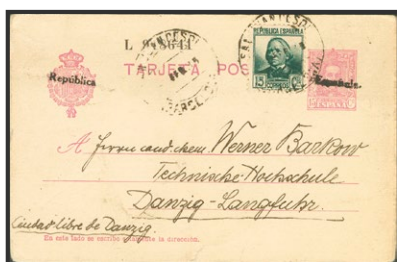 REPUBLICA ESPAÑOLA
TARJETA POS
República
Española.
15 CORREOS
ESPAÑA
A Herrn cand. chem. Werner Barkow
Technische Hochschule
Danzig-Langfuhr.
Ciudad libre de Danzig.
En este lado se escribe solamente la dirección.